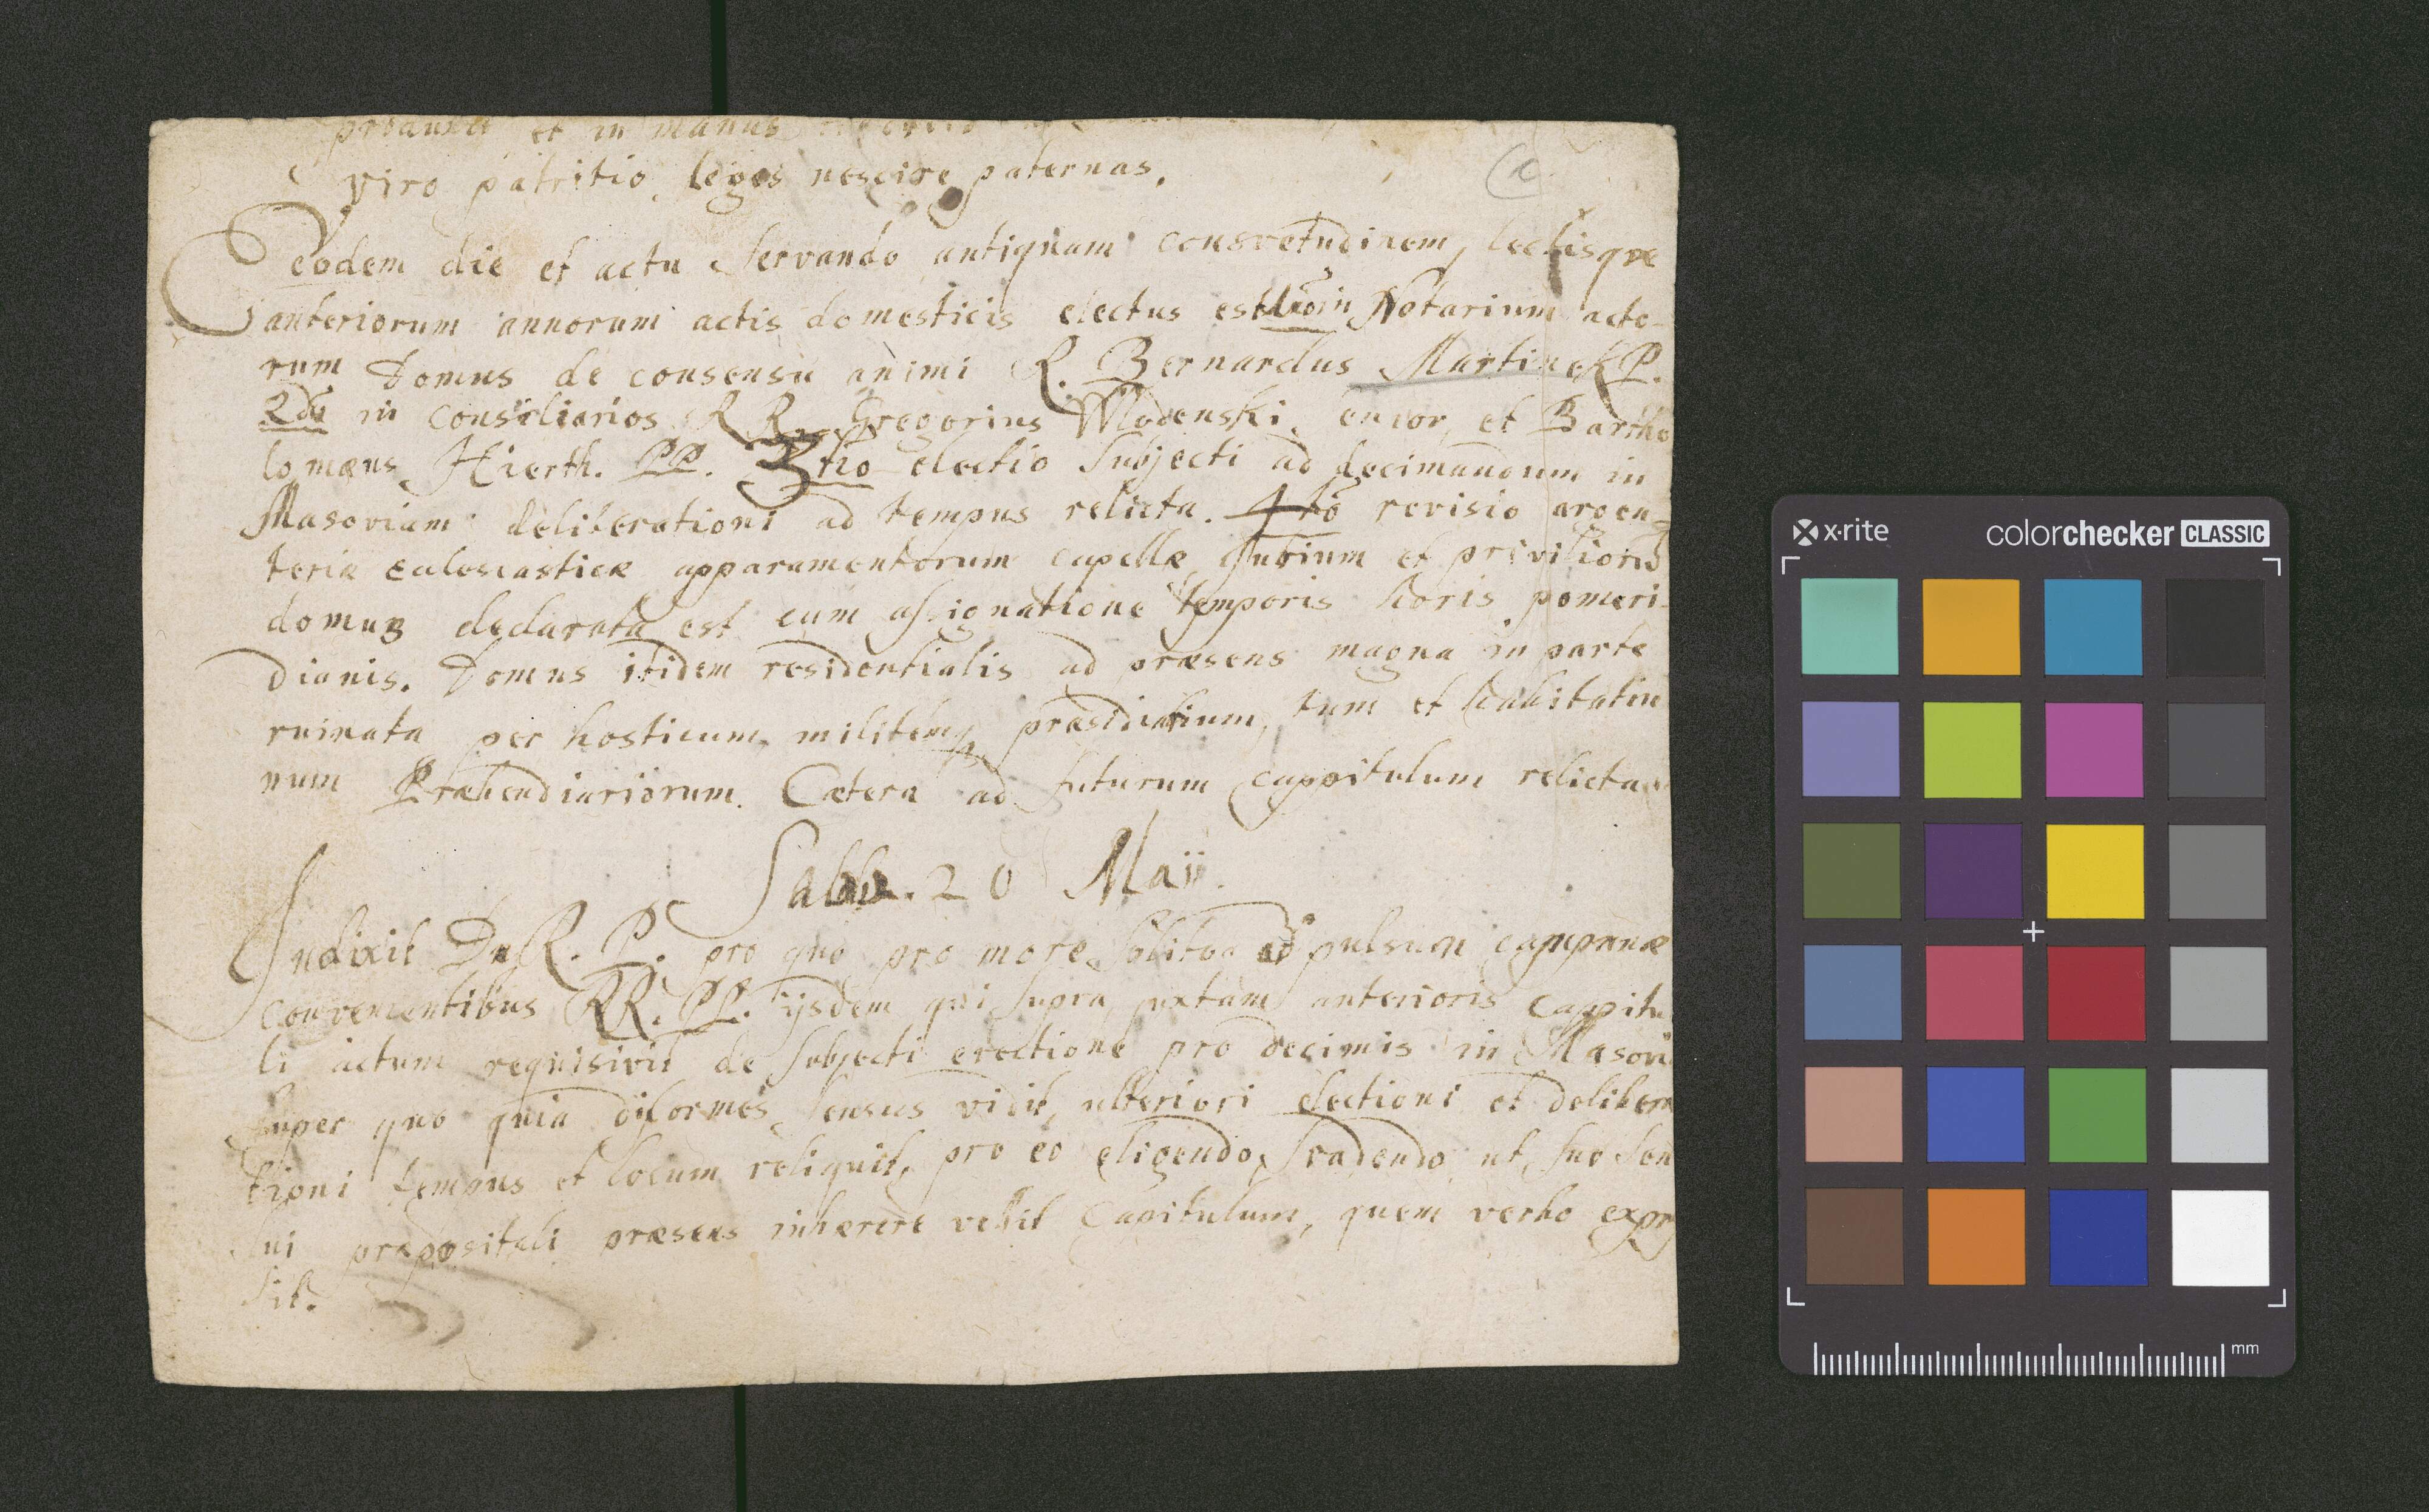 et in manus
viro patritio, leges nescire paternas.
Eodem die et actu servando antiquam consvetudinem, lectisque
anteriorum annorum actis domesticis electus est 1mo in Notarium acto-
rum Domus de consensu animi R. Bernardus Martinek P.
2do in consiliarios RR. Gregorius Wlodenski, et Bartho
lomæus Hierth. PP. 3tio electio Subjecti ad decimandum in
Masoviam deliberationi ad tempus relicta. 4to revisio argen-
teriæ Ecclesiasticæ apparamentorum capellæ et
domus declarata est cum assignatione temporis horis pomeri-
dianis. Domus itidem residentialis ad præsens magna in parte
ruinata per hosticum militem præsidiarium, tum et habitatin
num Præbendiariorum. Cætera ad futurum cappitulum relicta
Sabb. 20 Maii.
Indixit Dn R. P. pro quo pro more solito ad pulsum campanæ
convenientibus RR. PP. ijsdem qui supra, juxtam anterioris cappitu
li actum requisivit de subjecti erectione pro decimis in Masovi
super quo quia diformes sensus vidit, ulteriori electioni et delibera
tioni tempus et locum reliquit, pro eo eligendo, svadendo ut suo sen
sui præpositali præsens inhærere velit Capitulum, quem verbo expres
sit.
x·rite
colorchecker CLASSIC
mm